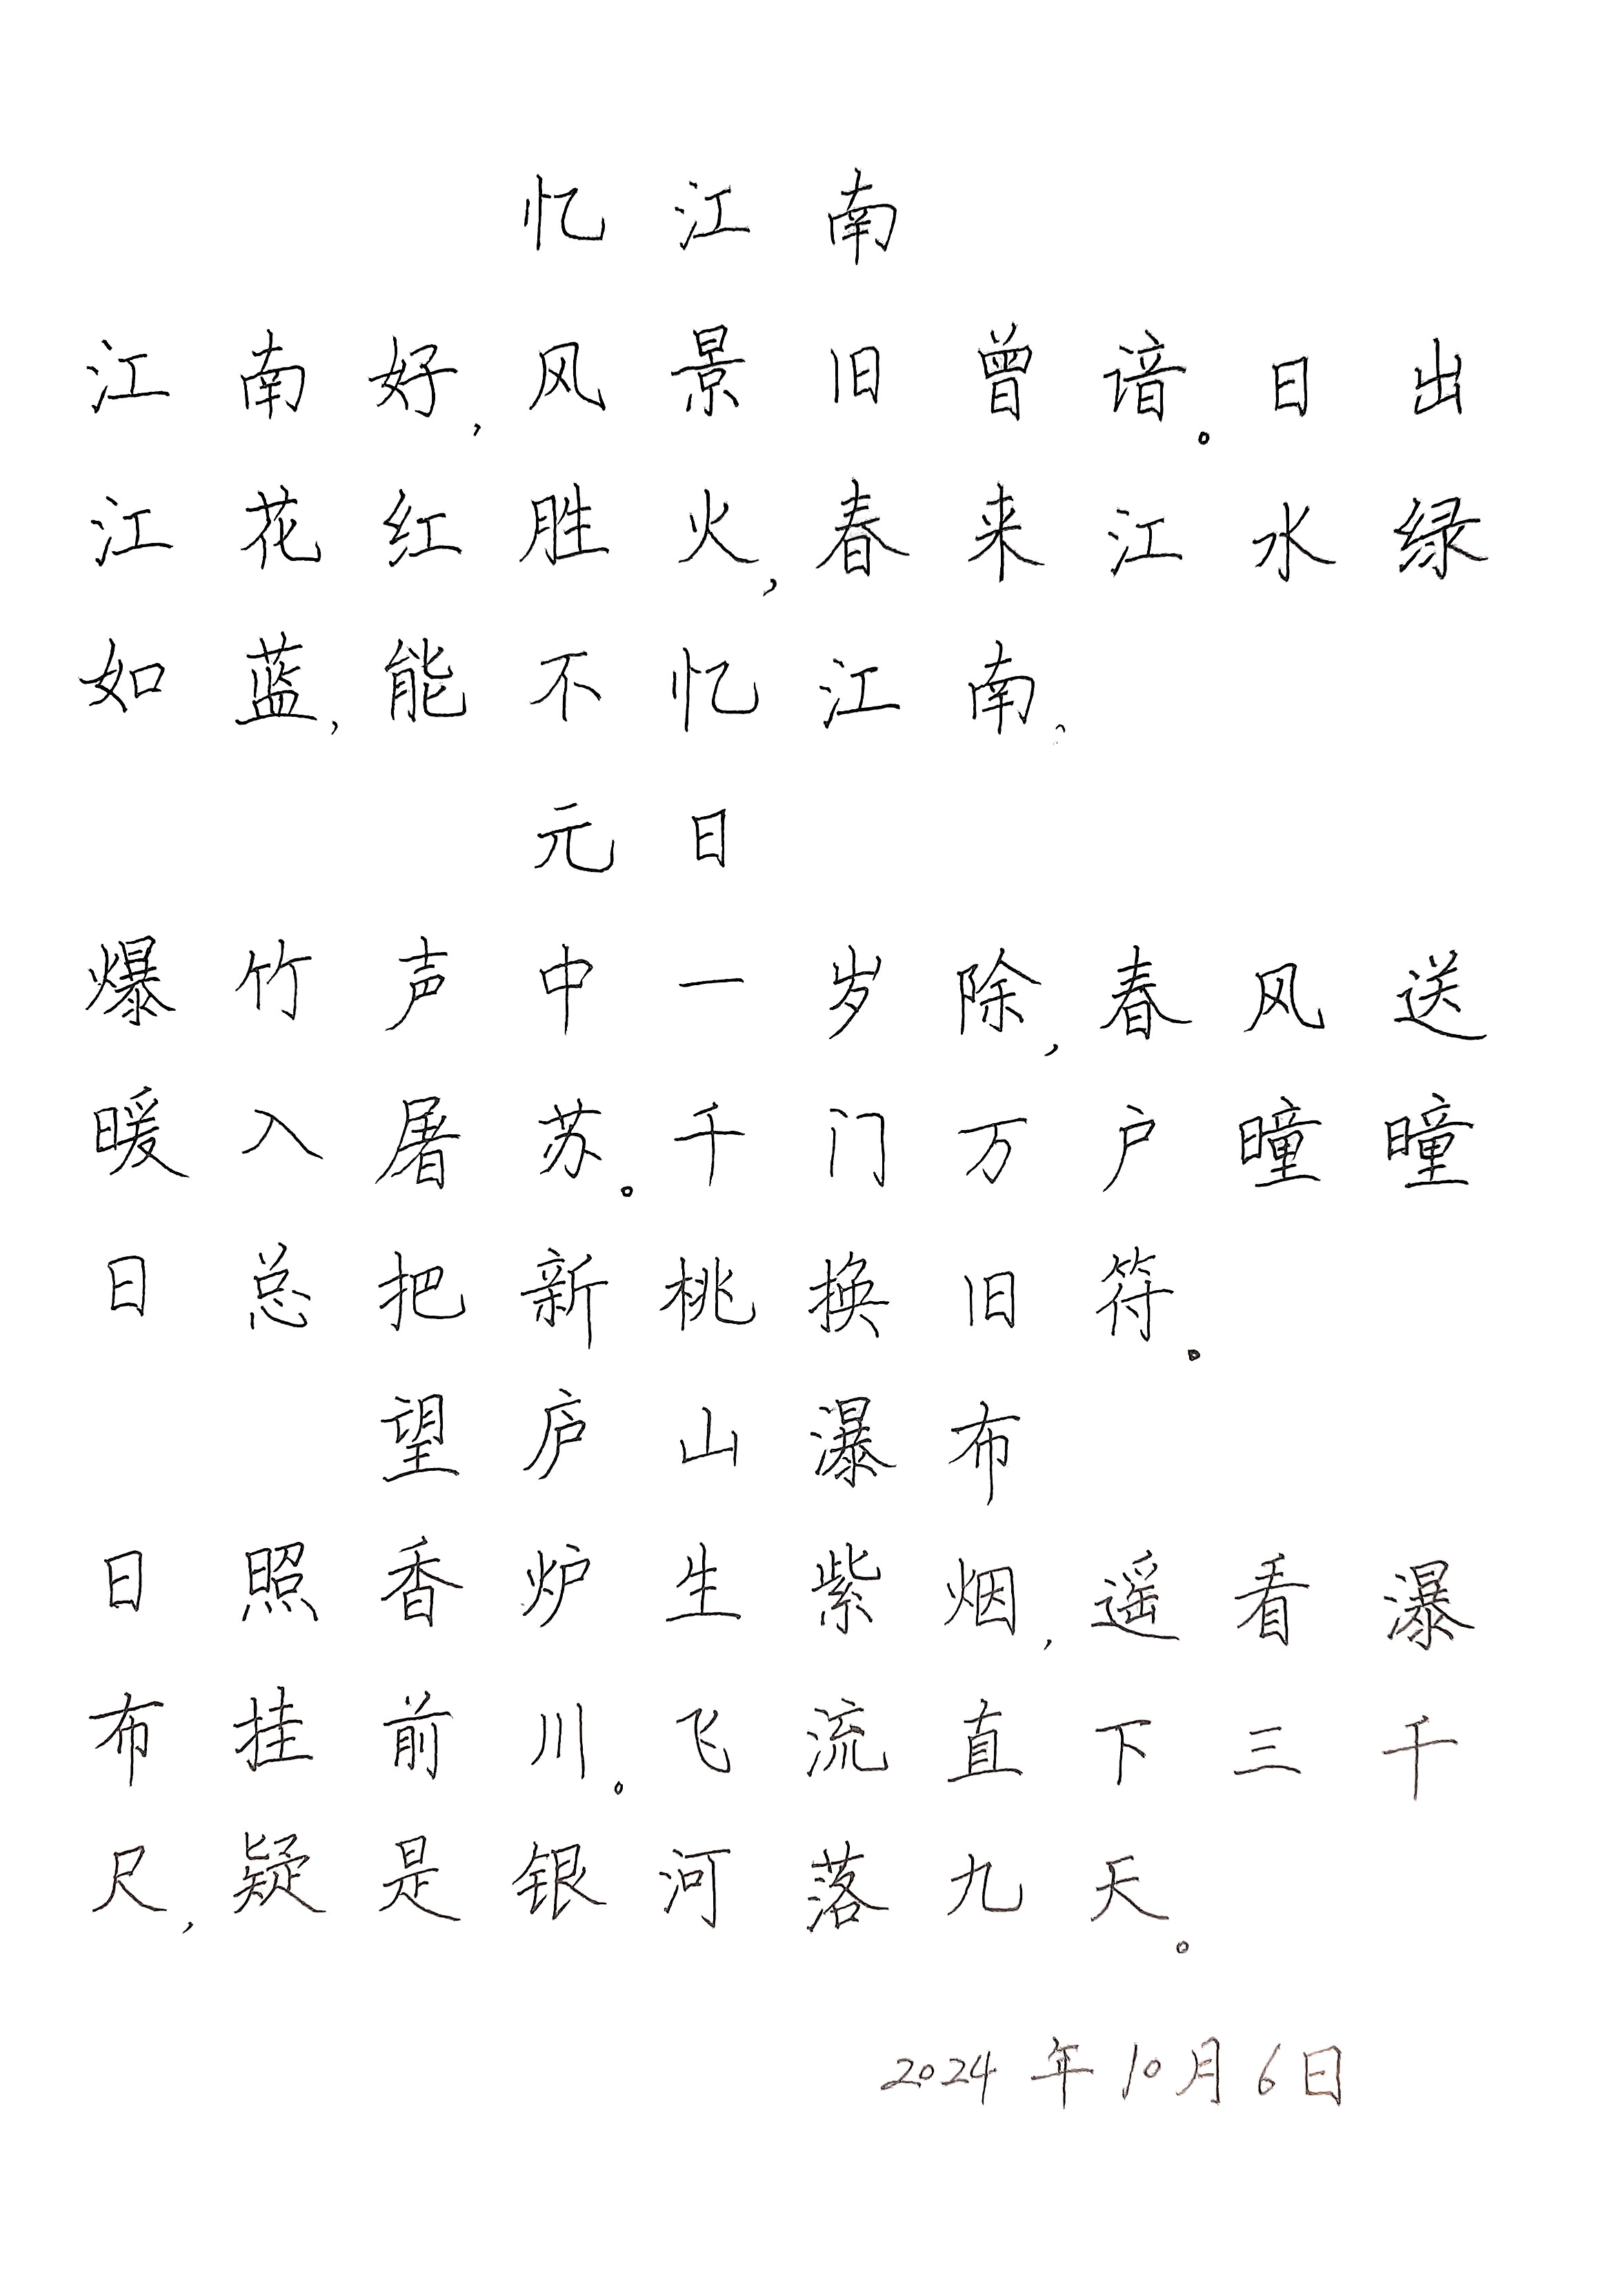 忆江南
江南好,风景旧曾谙。日出
江花红胜火,春来江水绿
如蓝,能不忆江南?
元日
爆竹声中一岁除,春风送
暖入屠苏。千门万户曈曈
日总把新桃换旧符。
望庐山瀑布
日照香炉生紫烟,遥看瀑
布挂前川。飞流直下三千
尺,疑是银河落九天。
2024年10月6日